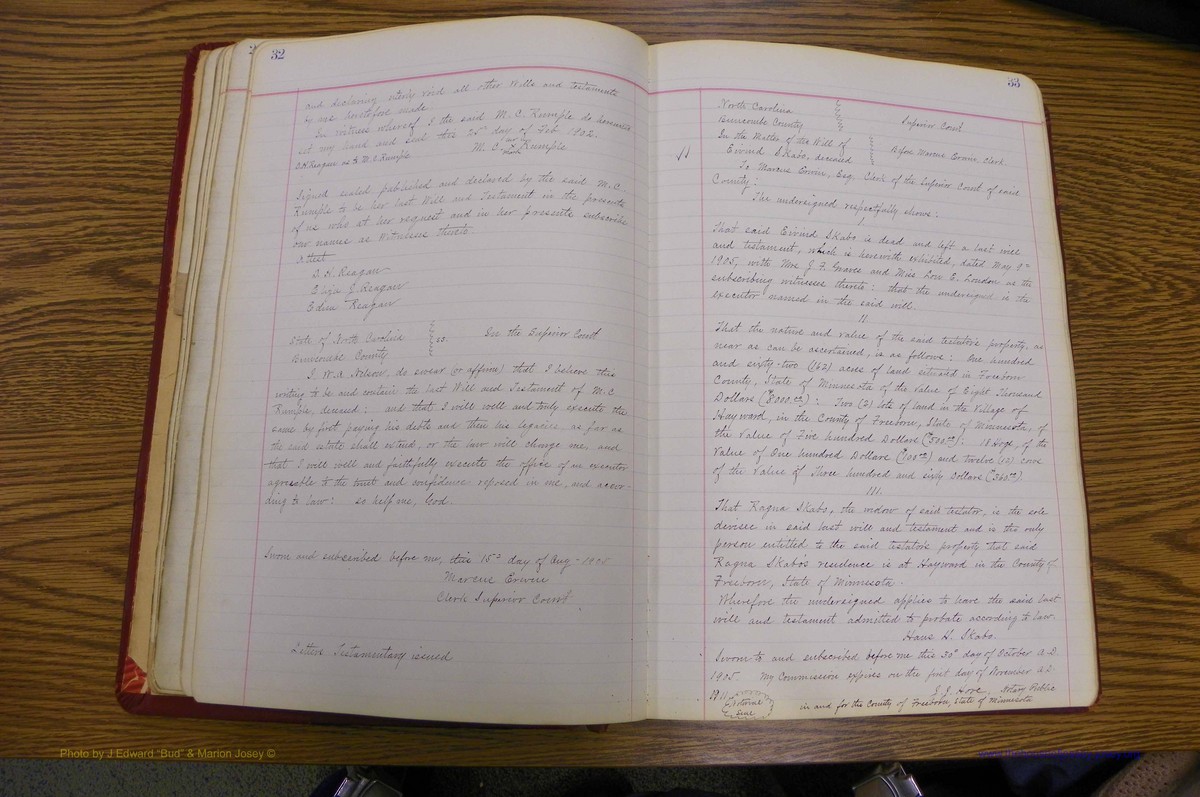 32
and declaring utterly void all other Wills and testaments
by me heretofore made.
In witness whereof I the said M. C. Rumple do hereunto
set my hand and seal this 25th day of Feb. 1902.
M. C. her x mark Rumple
D. H. Reagan as to M. C. Rumple
Signed sealed published and declared by the said M. C.
Rumple to be her last Will and Testament in the presents
of us who at her request and in her presents subscribe
our names as Witnesses thereto.
Attest
D. H. Reagan
Eliza G. Reagan
Edna Reagan
State of North Carolina
Buncombe County
ss.
In the Superior Court
I, W. A. Nelson, do swear (or affirm) that I believe this
writing to be and contain the last Will and Testament of M. C.
Rumple, deceased; and that I will well and truly execute the
same by first paying his debts and then his legacies, as far as
the said estate shall extend, or the law will charge me, and
that I will well and faithfully execute the office of an executor
agreeable to the trust and confidence reposed in me, and accor-
ding to law: so help me, God.
Sworn and subscribed before me, this 15th day of Aug - 1905
Marcus Erwin
Clerk Superior Court
Letters Testamentary issued
33
North Carolina
Buncombe County
Superior Court
In the Matter of the Will of
Eivind Skabo, deceased
Before Marcus Erwin, Clerk.
To Marcus Erwin, Esq. Clerk of the Superior Court of said
County:
The undersigned respectfully shows:
I.
That said Eivind Skabo is dead and left a last will
and testament, which is herewith exhibited, dated May 9th
1905, with Mrs. J. F. Graves and Miss Low E. Loudon as the
subscribing witnesses thereto: that the undersigned is the
executor named in the said will.
II.
That the nature and value of the said testator's property, as
near as can be ascertained, is as follows: One hundred
and sixty-two (162) acres of land situated in Freeborn
County, State of Minnesota of the value of Eight Thousand
Dollars ($8000.00): Two (2) lots of land in the Village of
Hayward, in the County of Freeborn, State of Minnesota, of
the value of Five hundred Dollars ($500.00): 18 Hogs, of the
Value of One hundred Dollars ($100.00) and twelve (12) cows
of the value of Three hundred and sixty Dollars ($360.00).
III.
That Ragna Skabo, the widow of said testator, is the sole
devisee in said last will and testament and is the only
person entitled to the said testator's property that said
Ragna Skabo's residence is at Hayward in the County of
Freeborn, State of Minnesota.
Wherefore the undersigned applies to have the said last
will and testament admitted to probate according to law.
Hans H. Skabo.
Sworn to and subscribed before me this 30th day of October A.D.
1905. My Commission expires on the first day of November A.D.
1911
Notary Public
in and for the County of Freeborn, State of Minnesota
Photo by J Edward "Bud" & Marion Josey ©